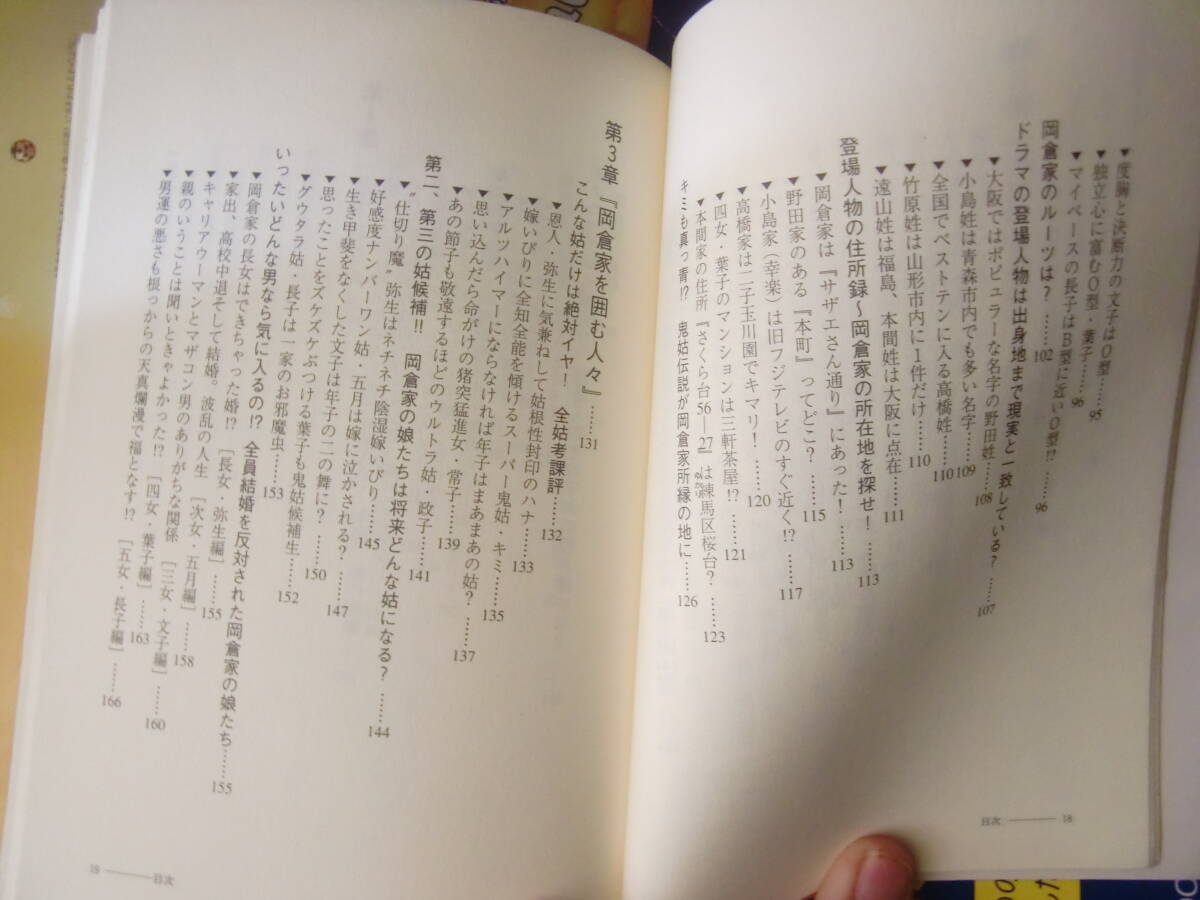 ▼度胸と決断力の文子はO型……95
▼独立心に富むO型・葉子……96
▼マイペースの長子はB型に近いO型!?……96
岡倉家のルーツは？……102
ドラマの登場人物は出身地まで現実と一致している？……107
▼大阪ではポピュラーな名字の野田姓……108
▼小島姓は青森市内でも多い名字……109
▼全国でベストテンに入る高橋姓……110
▼竹原姓は山形市内に1件だけ……110
▼遠山姓は福島、本間姓は大阪に点在……111
登場人物の住所録〜岡倉家の所在地を探せ！……113
▼岡倉家は『サザエさん通り』にあった！……113
▼野田家のある『本町』ってどこ？……115
▼小島家（幸楽）は旧フジテレビのすぐ近く!?……117
▼高橋家は二子玉川園でキマリ！……120
▼四女・葉子のマンションは三軒茶屋!?……121
▼本間家の住所『さくら台56―27』は練馬区桜台？……123
キミも真っ青!?　鬼姑伝説が岡倉家所縁の地に……126
目次――18
第3章『岡倉家を囲む人々』……131
こんな姑だけは絶対イヤ！　全姑考課評……132
▼恩人・弥生に気兼ねして姑根性封印のハナ……133
▼嫁いびりに全知全能を傾けるスーパー鬼姑・キミ……135
▼アルツハイマーにならなければ年子はまあまあの姑？……137
▼思い込んだら命がけの猪突猛進女・常子……139
▼あの節子も敬遠するほどのウルトラ姑・政子……141
第二、第三の姑候補!!　岡倉家の娘たちは将来どんな姑になる？……144
▼〝仕切り魔〟弥生はネチネチ陰湿嫁いびり……145
▼好感度ナンバーワン姑・五月は嫁に泣かされる？……147
▼生き甲斐をなくした文子は年子の二の舞に？……150
▼思ったことをズケズケぶつける葉子も鬼姑候補生……152
▼グウタラ姑・長子は一家のお邪魔虫……153
いったいどんな男なら気に入るの!?　全員結婚を反対された岡倉家の娘たち……155
▼岡倉家の長女はできちゃった婚!?　［長女・弥生編］……155
▼家出、高校中退そして結婚。波乱の人生　［次女・五月編］……158
▼キャリアウーマンとマザコン男のありがちな関係　［三女・文子編］……160
▼親のいうことは聞いときゃよかった!?　［四女・葉子編］……163
▼男運の悪さも根っからの天真爛漫で福となす!?　［五女・長子編］……166
19――目次